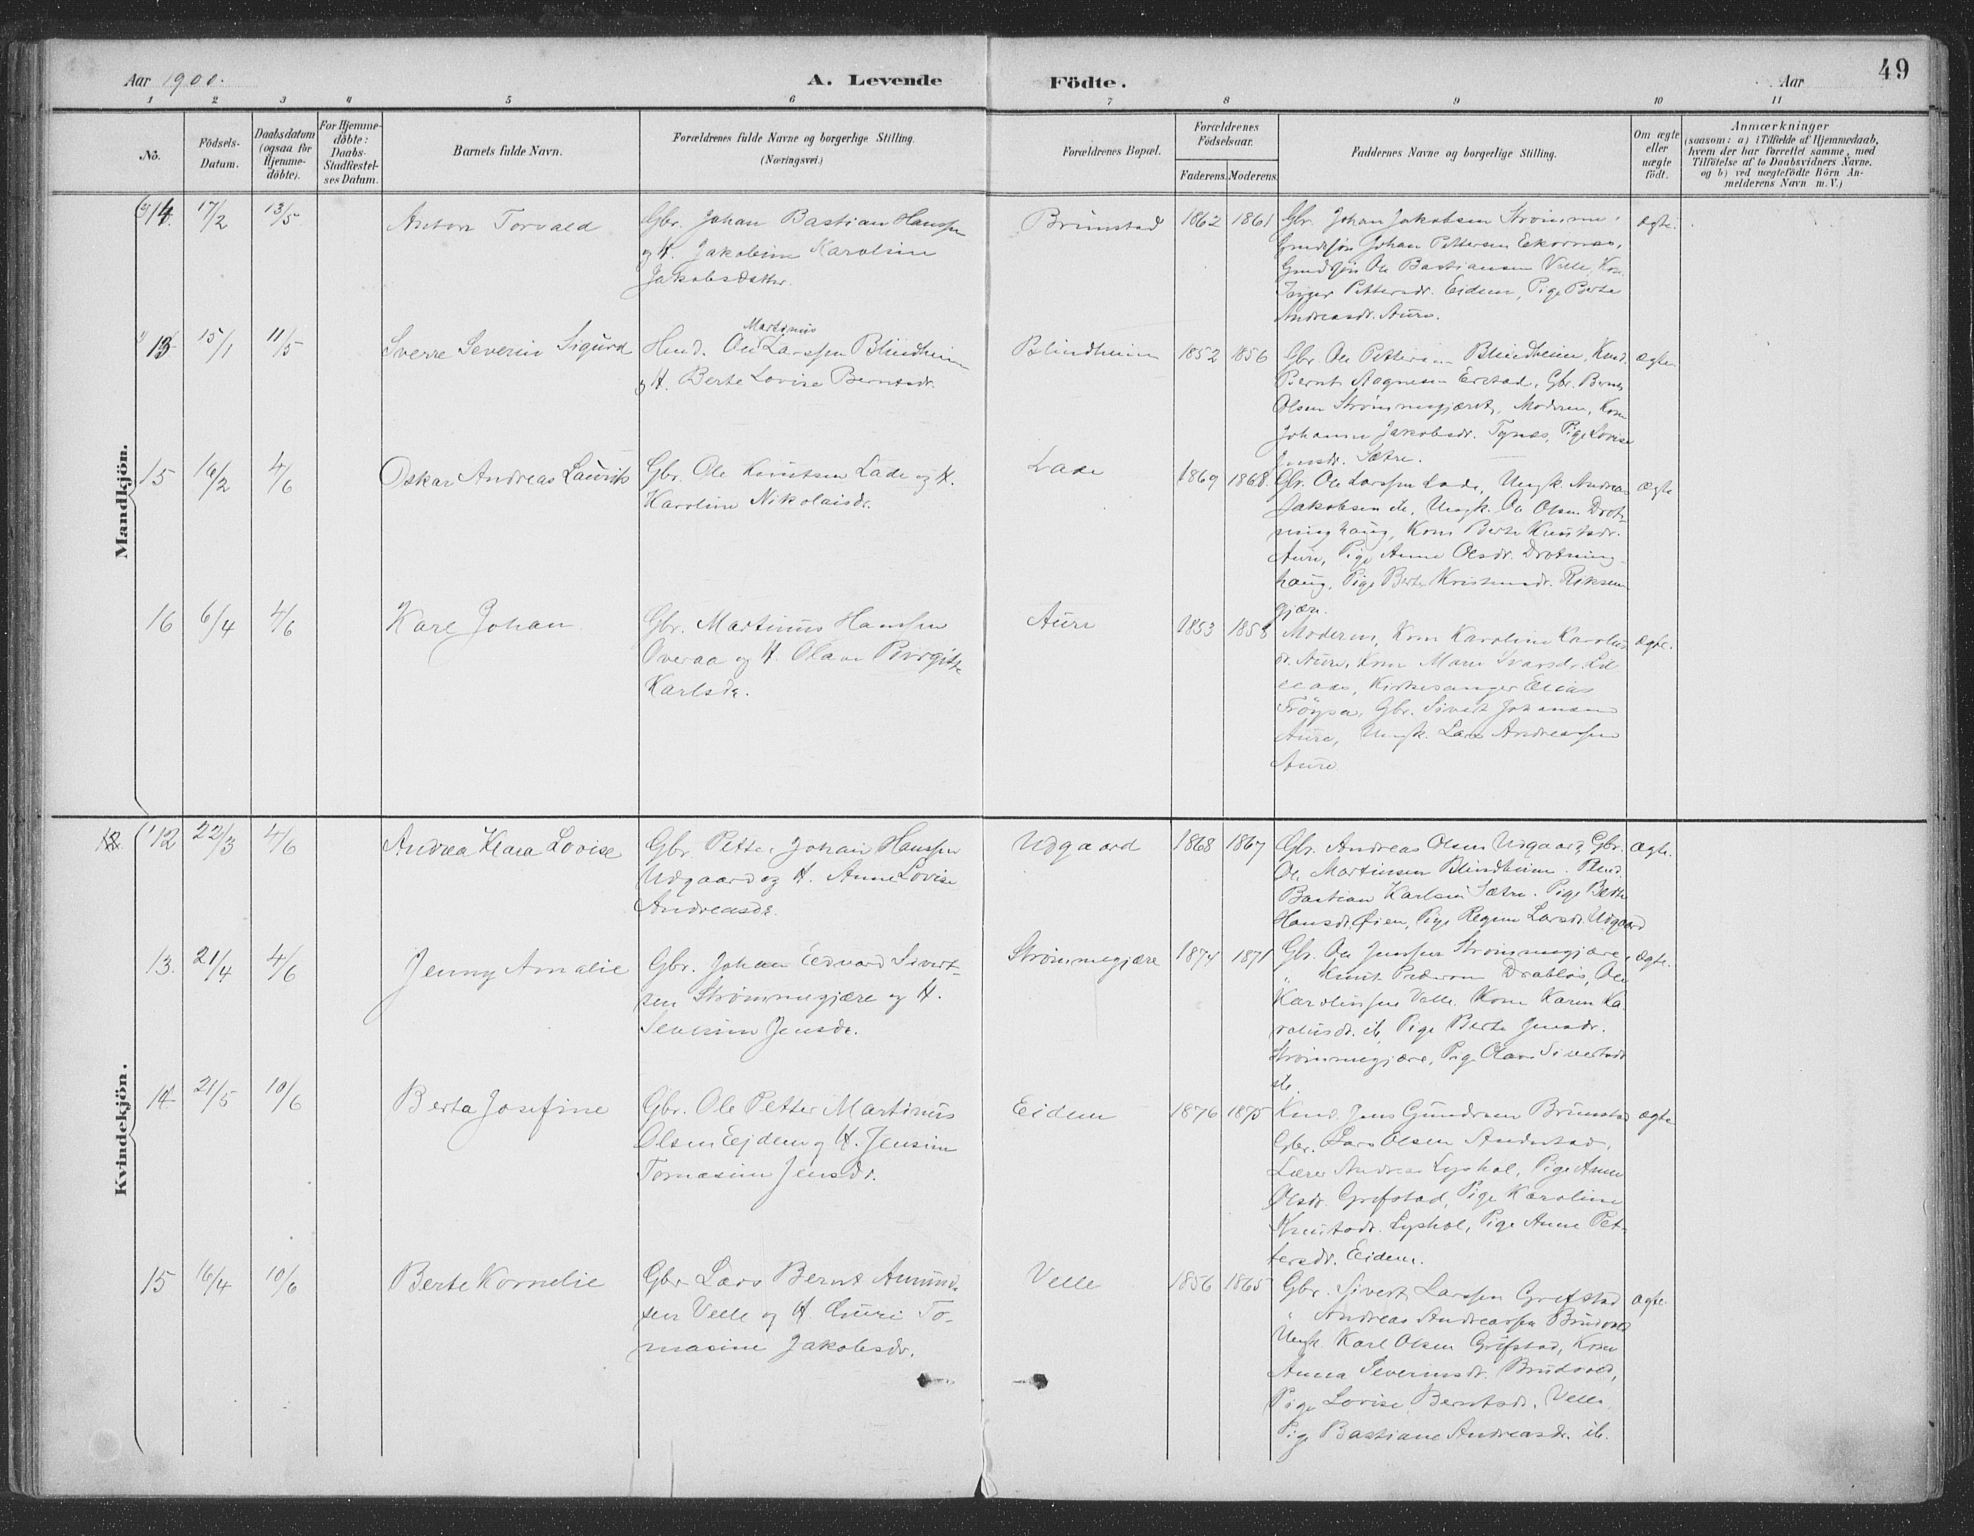 Aar 1900.
A. Levende Födte.
Aar
49
1 2 3 4 5 6 7 8 9 10 11
No.
Födsels-
Datum.
Daabsdatum
(ogsaa for
Hjemme-
döbte).
For Hjemme-
döbte:
Daabs-
Stadfæstel-
ses Datum.
Barnets fulde Navn.
Forældrenes fulde Navne og borgerlige Stilling.
(Næringsvei.)
Forældrenes Bopæl.
Forældrenes
Födselsaar.
Faderens. Moderens.
Faddernes Navne og borgerlige Stilling.
Om ægte
eller
uægte
födt.
Anmærkninger
(saasom: a) i Tilfælde af Hjemmedaab,
hvem der har forrettet samme, med
Tilföielse af to Daabsvidners Navne,
og b) ved uægtefödte Börn An-
melderens Navn m. V.)
Mandkjön.
14. 17/2 13/5 Anton Torvald
Gbr. Johan Bastian Hanssen
og H. Jakobine Karoline
Jakobsdatter.
Brunstad 1862 1861
Gbr. Johan Jakobsen Strømme,
Gmdssøn Johan Pettersen Ekornæs,
Gmdssøn Ole Bastiansen Velle, Kone
Pettersdr. Eidem, Pige Berte
Andreasdr. Aure.
ægte.
13 15/1 11/5 Sverre Severin Sigurd
Hmd. Ole Martinus Larssen Blindheim
og H. Berte Lovise Berntsdr.
Blindheim 1852 1856
Gbr. Ole Petterson Blindheim, Kmd.
Bernt Magnesen Erstad, Gbr. Bernt
Olsen Strømmegjæret, Moderen, Kone
Johanne Jakobsdr. Tynæs, Pige Lovise
Jensdr. Sætre.
ægte
15 16/2 4/6 Oskar Andreas Laurits
Gbr. Ole Knutsen Lade og H.
Karoline Nikolaisdr.
Lade 1869 1868
Gbr. Ole Larssen Lade, Ungk. Andreas
Jakobsen ib, Ungk. Ole Olsen Drot-
ninghaug, Kone Berte Knutsdr.
Aure, Pige Anne Olsdr. Drotning-
haug, Pige Berte Kristensdr. Riksem-
gjære.
ægte
16 6/4 4/6 Karl Johan
Gbr. Martinus Hanssen
Overaa og H. Olave Birgitte
Karlsdr.
Aure 1853 1858
Moderen, Kone Karoline Karolus-
dr. Aure, Kone Marie Ivarsdr.
Kirkesanger Elias
Trøysa, Gbr. Sivert Johansen
Aure, Ungk. Lars Andreassen
Aure
ægte.
Kvindekjön.
12 22/3 4/6 Andrea Klara Lovise
Gbr. Petter Johan Hanssen
Udgaard og H. Anne Lovise
Andreasdr.
Udgaard 1868 1867
Gbr. Andreas Olsen Udgaard, Gbr.
Ole Martinsen Blindheim.
Bastian Karlsen Sætre. Pige Berthe
Hansdr. Øien, Pige Regine Larsdr. Udgaard
ægte.
13. 21/4 4/6 Jenny Amalie
Gbr. Johan Edvard Sivert-
sen Strømmegjære og H.
Severine Jensdr.
Strømmegjære 1874 1871
Gbr. Ole Jenssen Strømmegjære,
" Knut Pederson Drabløs, Ole
Karolinssen Velle. Kone Karen Ka-
rolusdr. ib, Pige Berte Jensdr.
Strømmegjære, Pige Olave Sivertsdr
ib.
ægte.
14 21/5 10/6 Berta Josefine
Gbr. Ole Petter Martinus
Olsen Eidem og H. Jensine
Tomasine Jensdr.
Eidem 1876 1875
Kmd. Jens Gundersen Brunstad
Gbr. Lars Olsen Andestad,
Lærer Andreas Lyshol, Pige Anne
Olsdr. Grefstad, Pige Karoline
Knutsdr. Lyshol, Pige Anne Pet-
tersdr. Eidem.
ægte
15 16/4 10/6 Berte Kornelie
Gbr Lars Bernt Amund-
sen Velle og H. Guri To-
masine Jakobsdr.
Velle 1856 1865
Gbr. Sivert Larssen Grefstad
" Andreas Andreassen Brudvold
Ungk Karl Olsen Grefstad, Kone
Anna Severinsdr. Brudvold,
Pige Lovise Berntsdr. Velle
Pige Bastiane Andreasdr. ib.
ægte.